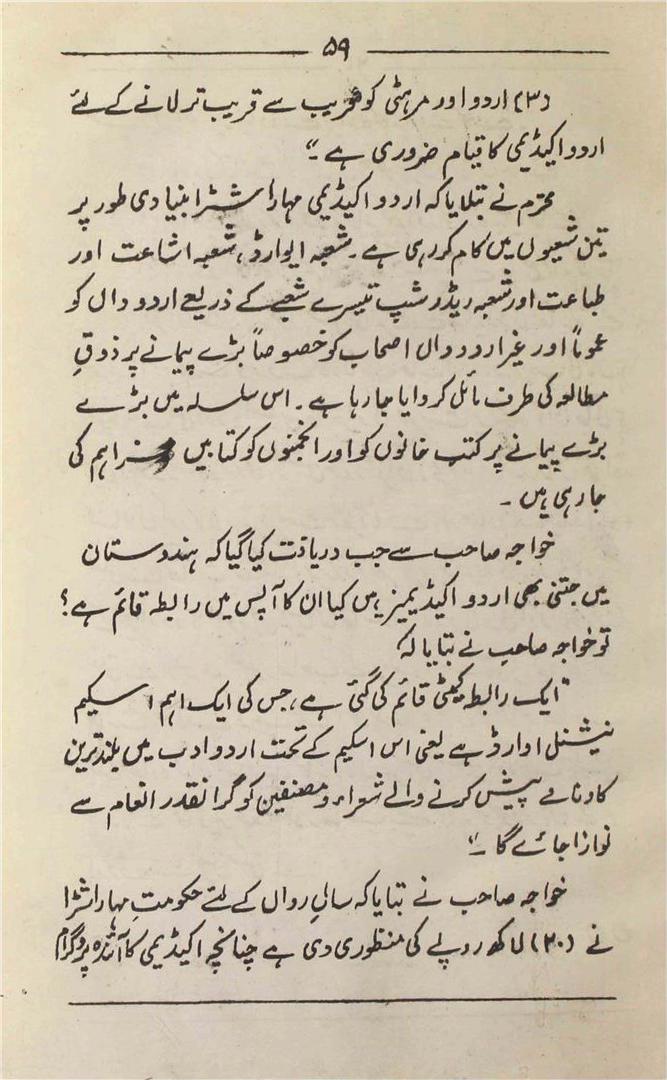 ۵۹
(۳) اردو اور مرہٹی کو قریب سے قریب تر لانے کے لئے
اردو اکیڈیمی کا قیام ضروری ہے ۔"
محترم نے بتلایا کہ اردو اکیڈیمی مہاراشٹرا بنیادی طور پر
تین شعبوں میں کام کر رہی ہے ۔ شعبہ ایوارڈ ، شعبہ اشاعت اور
طباعت اور شعبہ ریڈر شپ تیسرے شعبے کے ذریعے اردو داں کو
عموماً اور غیر اردو داں اصحاب کو خصوصاً بڑے پیمانے پر ذوقِ
مطالعہ کی طرف مائل کروایا جا رہا ہے ۔ اس سلسلہ میں بڑے
بڑے پیمانے پر کتب خانوں کو اور انجمنوں کو کتابیں فراہم کی
جا رہی ہیں ۔
خواجہ صاحب سے جب دریافت کیا گیا کہ ہندوستان
میں جتنی بھی اردو اکیڈیمیز ہیں کیا ان کا آپس میں رابطہ قائم ہے ؟
تو خواجہ صاحب نے بتایا کہ
"ایک رابطہ کمیٹی قائم کی گئی ہے ، جس کی ایک اہم اسکیم
نیشنل اوارڈ ہے یعنی اس اسکیم کے تحت اردو ادب میں بلند ترین
کارنامے پیش کرنے والے شعراء و مصنفین کو گرانقدر انعام سے
نوازا جائے گا ۔"
خواجہ صاحب نے بتایا کہ سالِ رواں کے لئے حکومتِ مہاراشٹرا
نے (۲۰) لاکھ روپے کی منظوری دی ہے چنانچہ اکیڈیمی کا آئندہ پروگرام